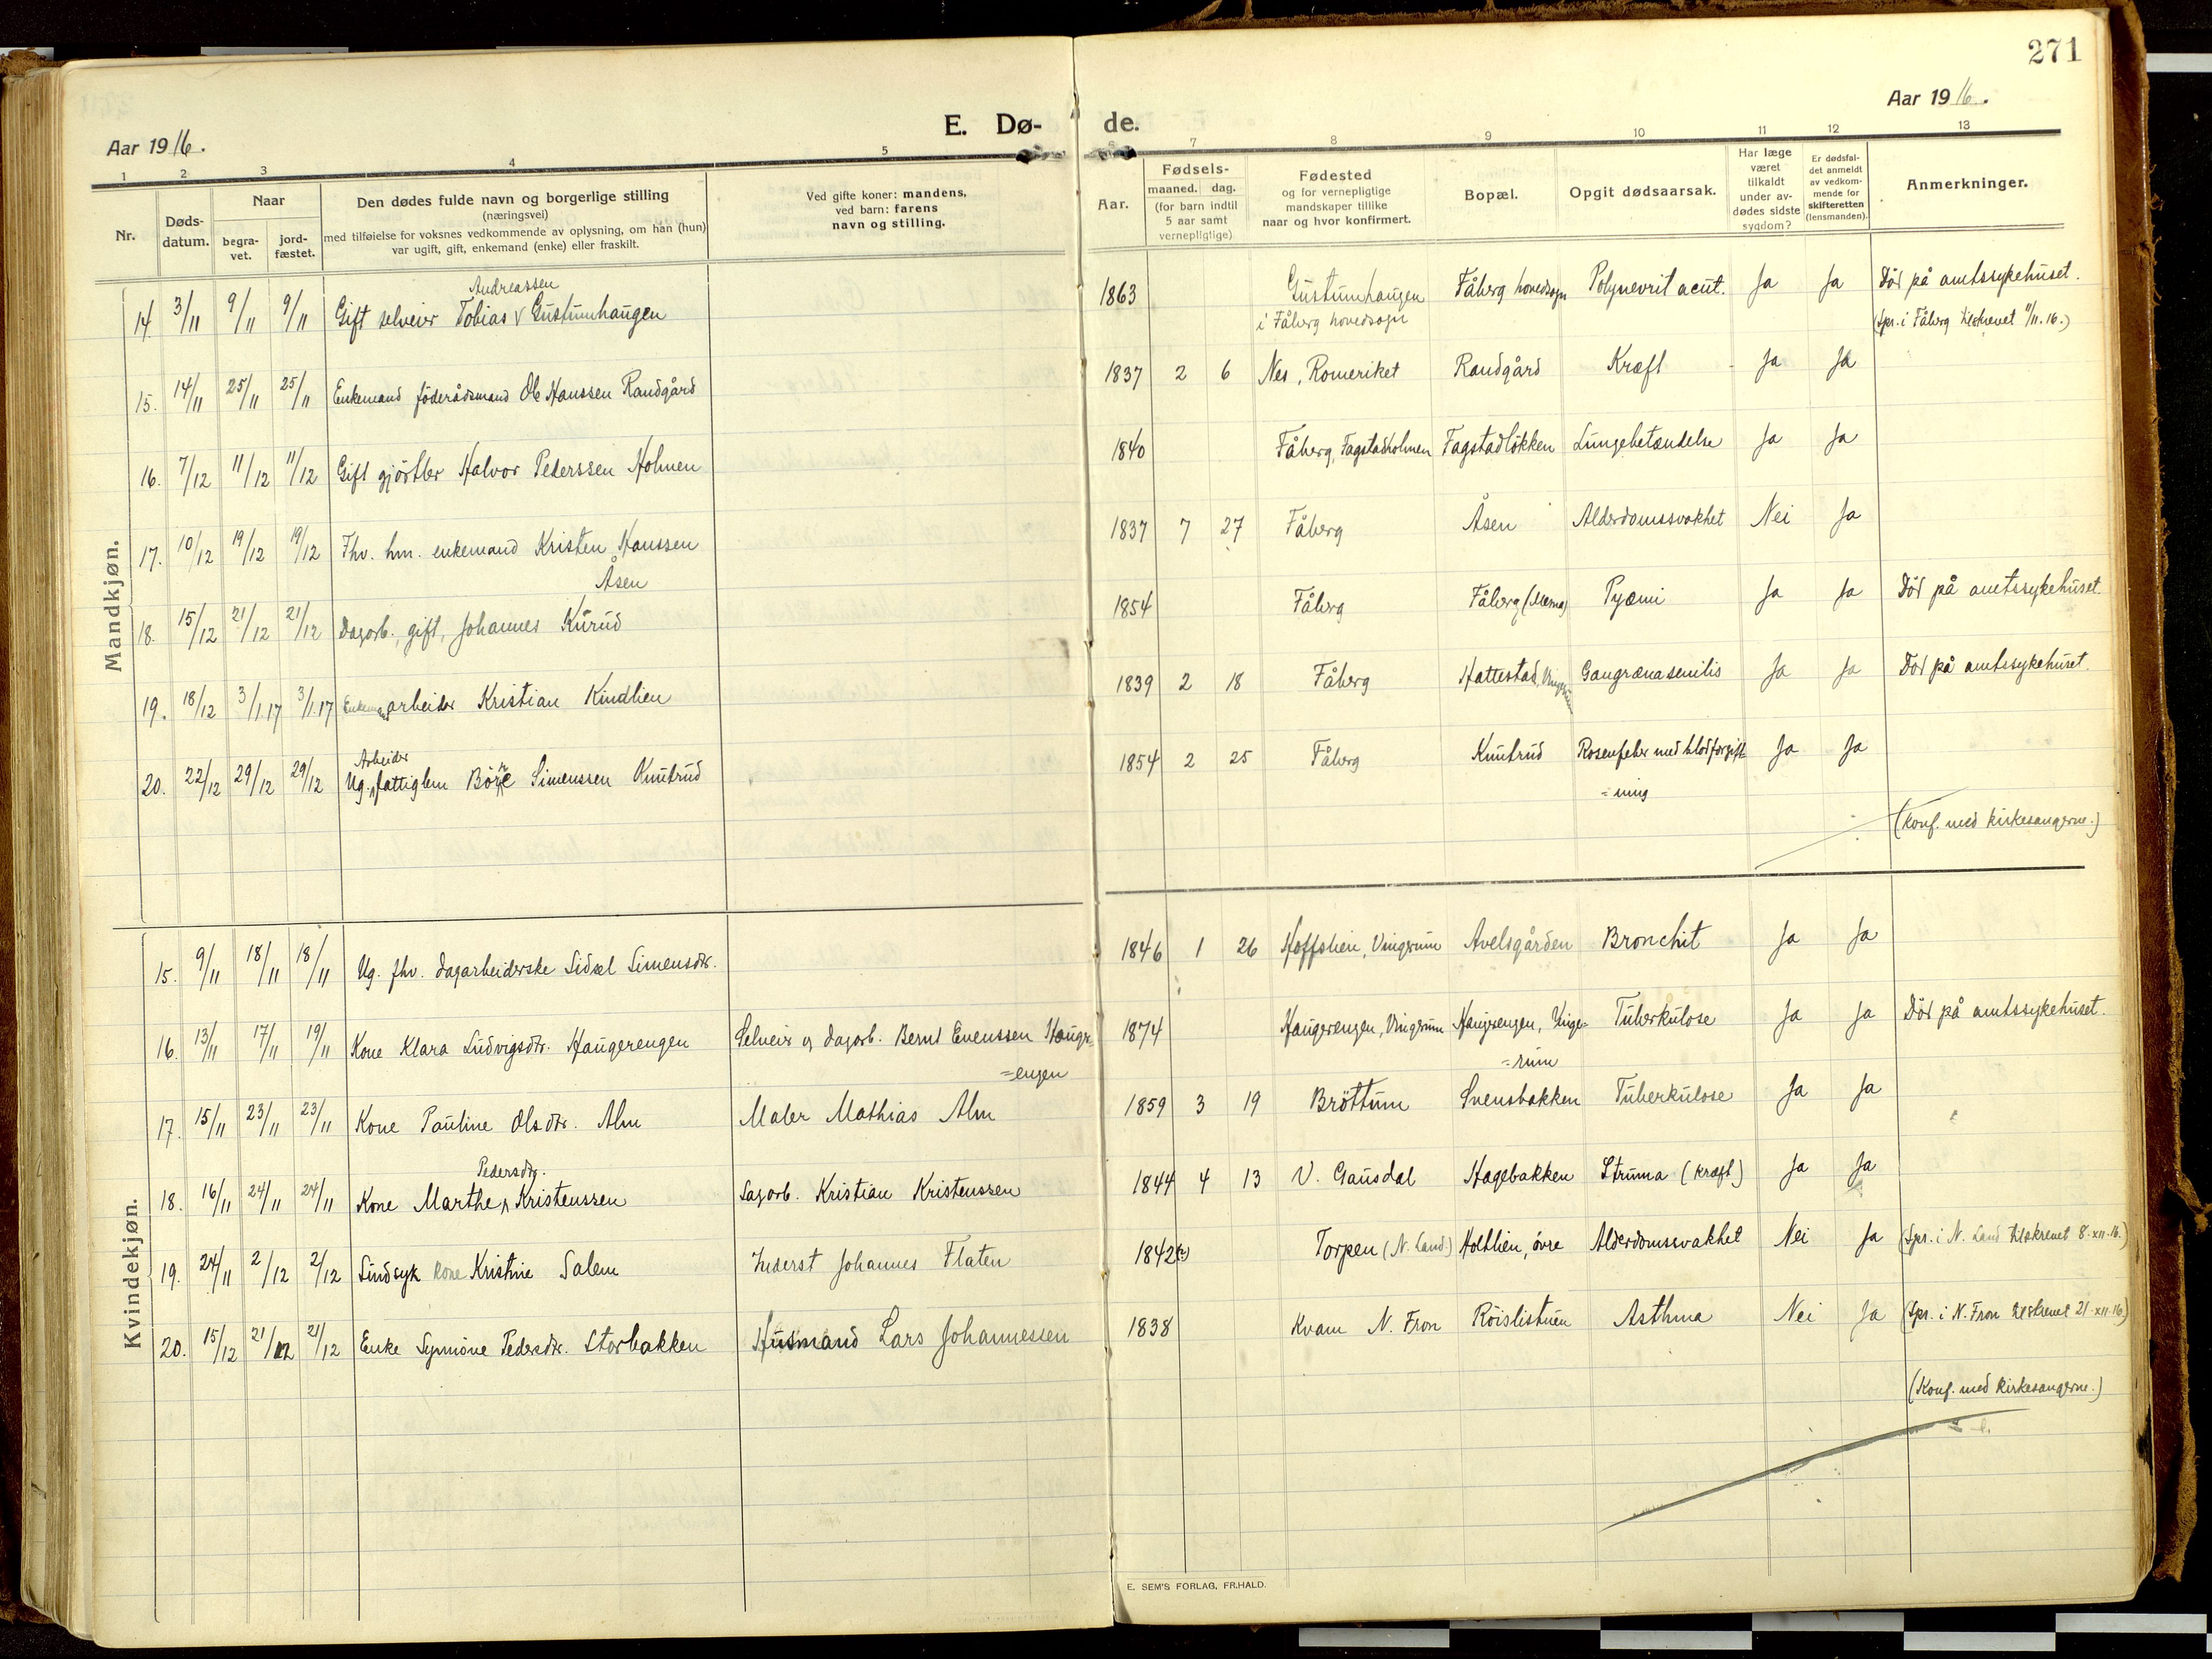 271
Aar 1916.
E. Dø-
de.
Aar 1916.
1 2 3 4 5
7 8 9 10 11 12 13
Nr.
Døds-
datum.
Naar
begra-
vet.
jord-
fæstet.
Den dødes fulde navn og borgerlige stilling
(næringsvei)
med tilføielse for voksnes vedkommende av oplysning, om han (hun)
var ugift, gift, enkemand (enke) eller fraskilt.
Ved gifte koner: mandens,
ved barn: farens
navn og stilling.
Aar.
Fødsels-
maaned. dag.
(for barn indtil
5 aar samt
vernepligtige)
Fødested
og for vernepligtige
mandskaper tillike
naar og hvor konfirmert.
Bopæl.
Opgit dødsaarsak.
Har læge
været
tilkaldt
under av-
dødes sidste
sygdom?
Er dødsfal-
det anmeldt
av vedkom-
mende for
skifteretten
(lensmanden).
Anmerkninger.
Mandkjøn.
Andreassen
14 3/11 9/11 9/11 Gift selveier Tobias V Gustumhaugen 1863 Gustumhaugen Fåberg hovedsogn Polynevrit acut. Ja Ja Död på amtssykehuset.
i Fåberg hovedsogn (Spr. i Fåberg tilskrevet 11/11.16.)
15. 14/11 25/11 25/11 Enkemand föderådsmand Ole Hanssen Randgård 1837 2 6 Nes, Romeriket Randgård Kræft Ja Ja
16. 7/12 11/12 11/12 Gift gjörtler Halvor Pederssen Holmen 1840 Fåberg, Fagstadholmen Fagstadlökken Lungebetændelse Ja Ja
17. 10/12 19/12 19/12 Fhv. hm. enkemand Kristen Hanssen 1837 7 27 Fåberg Åsen Alderdomssvakhet Nei Ja
Åsen
18. 15/12 21/12 21/12 Dagarb., gift, Johannes Kurud 1854 Fåberg Fåberg (Mesna) Pyæmi Ja Ja Död på amtssykehuset.
19. 18/12 3/1.17 3/1.17 Enkem. arbeider Kristian Kindlien 1839 2 18 Fåberg Hattestad, Vingrum Gangræna senilis Ja Ja Död på amtssykehuset.
Arbeider
20. 22/12 29/12 29/12 Ug. fattiglem Börre Simenssen Knutrud 1854 2 25 Fåberg Knutrud Rosenfeber med blodforgift- Ja Ja
=ning
(Konf. med kirkesangerne.)
Kvindekjøn.
15. 9/11 18/11 18/11 Ug. fhv. dagarbeiderske Sidsel Simensdtr. 1846 1 26 Hoffslien, Vingrum Avelsgården Bronchit Ja Ja
16. 13/11 17/11 19/11 Kone Klara Ludvigsdtr. Haugerengen Selveir og dagarb. Bernt Evenssen Hauger= 1874 Haugerengen, Vingrum Haugerengen, Vinge= Tuberkulose Ja Ja Död på amtssykehuset.
=engen =rum
17. 15/11 23/11 23/11 Kone Pauline Olsdtr. Alm Maler Mathias Alm 1859 3 19 Bröttum Svensbakken Tuberkulose Ja Ja
Pedersdtr.
18. 16/11 24/11 24/11 Kone Marthe Kristenssen Dagarb. Kristian Kristenssen 1844 4 13 V. Gausdal Hagebakken Struma (kræft) Ja Ja
19. 24/11 2/12 2/12 Sindsyk kone Kristine Salem Inderst Johannes Flaten 1842(?) Torpen (N. Land.) Holtlien, övre Alderdomssvakhet Nei Ja (Spr. i N. Land tilskrevet 8-XII-16.)
20. 15/12 21/12 21/12 Enke Synnöve Pedersdtr. Storbakken Husmand Lars Johannessen 1838 Kvam N. Fron Röislistuen Asthma Nei Ja (Spr. i N. Fron tilskrevet 21-XII-16)
(Konf. med kirkesangerne.)
E. SEM'S FORLAG, FR.HALD.